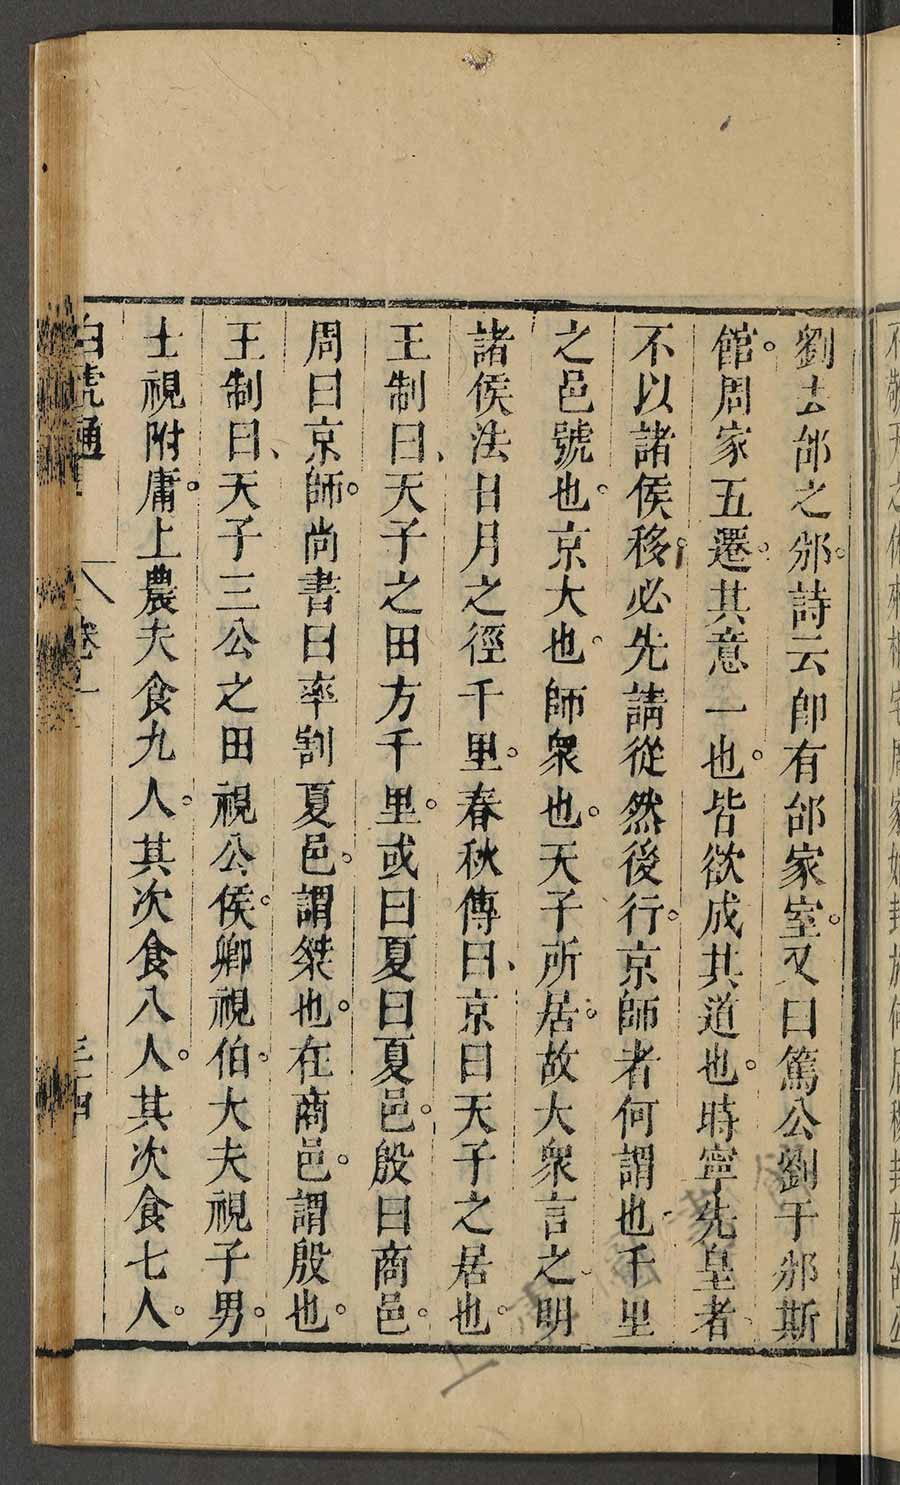 劉去邰之邠。詩云卽有邰家室。又曰篤公劉于邠斯
館。周家五遷。其意一也。皆欲成其道也。時寧先皇者
不以諸侯移。必先請從然後行。京師者何謂也千里
之邑號也。京大也。師衆也。天子所居。故大衆言之明
諸侯法日月之徑千里。春秋傳曰、京曰天子之居也。
王制曰、天子之田方千里。或曰夏曰夏邑。殷曰商邑。
周曰京師。尚書曰率割夏邑。謂桀也。在商邑。謂殷也。
王制曰、天子三公之田視公侯。卿視伯。大夫視子男。
士視附庸。上農夫食九人。其次食八人。其次食七人。
白虎通